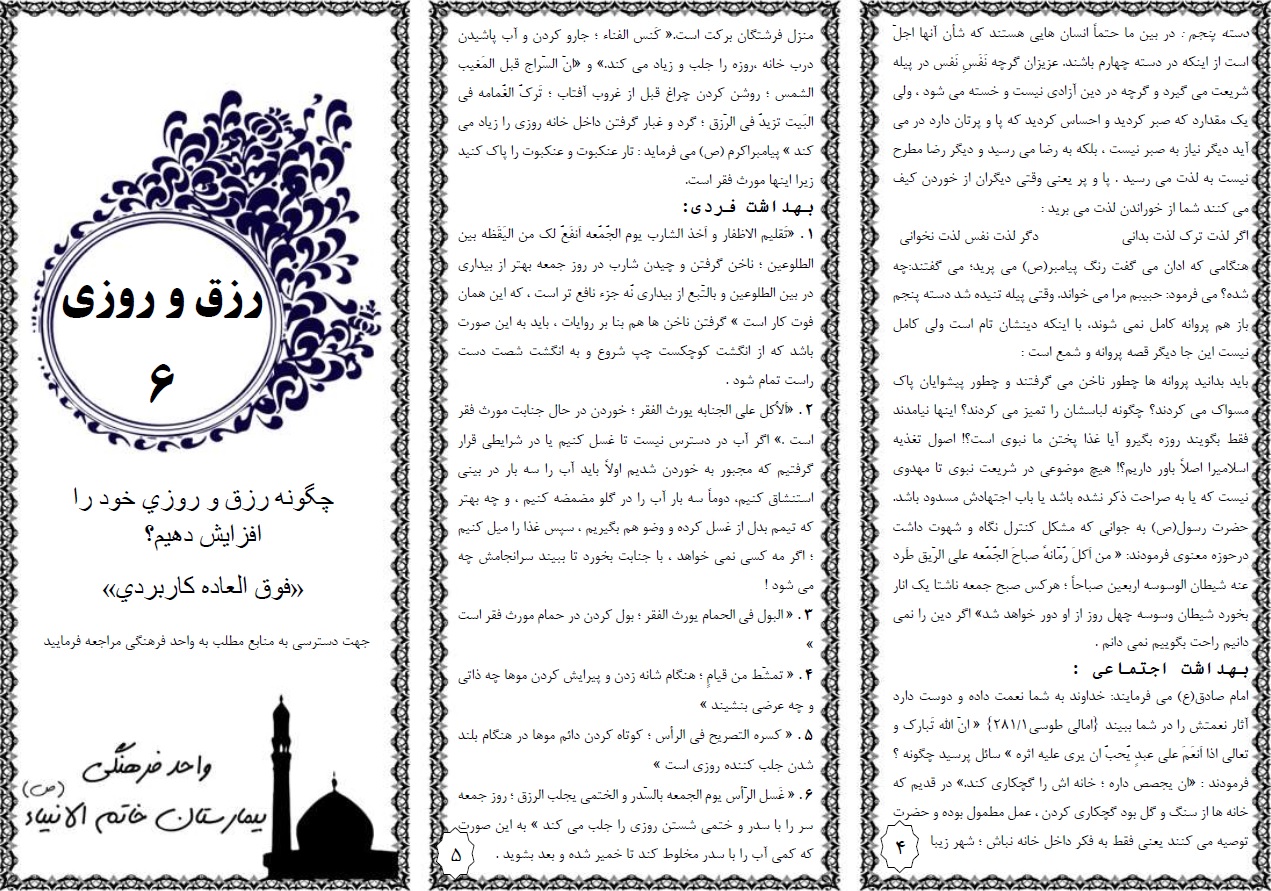 دسته پنجم : در بین ما حتماً انسان هایی هستند که شأن آنها اجلّ
است از اینکه در دسته چهارم باشند. عزیزان گرچه نَفَسِ نَفس در پیله
شریعت می گیرد و گرچه در دین آزادی نیست و خسته می شود ، ولی
یک مقدارد که صبر کردید و احساس کردید که پا و پرتان دارد در می
آید دیگر نیاز به صبر نیست ، بلکه به رضا می رسید و دیگر رضا مطرح
نیست به لذت می رسید . پا و پر یعنی وقتی دیگران از خوردن کیف
می کنند شما از خوراندن لذت می برید :
اگر لذت ترک لذت بدانی دگر لذت نفس لذت نخوانی
هنگامی که اذان می گفت رنگ پیامبر(ص) می پرید؛ می گفتند:چه
شده؟ می فرمود: حبیبم مرا می خواند. وقتی پیله تنیده شد دسته پنجم
باز هم پروانه کامل نمی شوند، با اینکه دینشان تام است ولی کامل
نیست این جا دیگر قصه پروانه و شمع است :
باید بدانید پروانه ها چطور ناخن می گرفتند و چطور پیشوایان پاک
مسواک می کردند؟ چگونه لباسشان را تمیز می کردند؟ اینها نیامدند
فقط بگویند روزه بگیرو آیا غذا پختن ما نبوی است؟! اصول تغذیه
اسلامیرا اصلاً باور داریم؟! هیچ موضوعی در شریعت نبوی تا مهدوی
نیست که یا به صراحت ذکر نشده باشد یا باب اجتهادش مسدود باشد.
حضرت رسول(ص) به جوانی که مشکل کنترل نگاه و شهوت داشت
درحوزه معنوی فرمودند: « من اَکلَ رّمّانهٔ صباحَ الجّمّعه علی الرّیق طَرد
عنه شیطان الوسوسه اربعین صباحاً ؛ هرکس صبح جمعه ناشتا یک انار
بخورد شیطان وسوسه چهل روز از او دور خواهد شد» اگر دین را نمی
دانیم راحت بگوییم نمی دانم .
بهداشت اجتماعی :
امام صادق(ع) می فرمایند: خداوند به شما نعمت داده و دوست دارد
آثار نعمتش را در شما ببیند {امالی طوسی۲۸۱/۱} « انّ الله تَبارک و
تعالی اذا اَنعَمَ علی عبدٍ یّحبّ ان یری علیه اثره » سائل پرسید چگونه ؟
فرمودند : «ان یجصص داره ؛ خانه اش را گچکاری کند.» در قدیم که
خانه ها از سنگ و گل بود گچکاری کردن ، عمل مطمول بوده و حضرت
توصیه می کنند یعنی فقط به فکر داخل خانه نباش ؛ شهر زیبا
۴
منزل فرشتگان برکت است.« کَنس الفناء ؛ جارو کردن و آب پاشیدن
درب خانه ،روزه را جلب و زیاد می کند.» و «انّ السّراج قبل المَغیب
الشمس ؛ روشن کردن چراغ قبل از غروب آفتاب ؛ تَرکّ الغّمامه فی
البَیت تزیدّ فی الرّزق ؛ گرد و غبار گرفتن داخل خانه روزی را زیاد می
کند » پیامبراکرم (ص) می فرماید : تار عنکبوت و عنکبوت را پاک کنید
زیرا اینها مورث فقر است.
بهداشت فردی:
۱. «تَقلیم الاظفار و اَخذ الشارب یوم الجّمّعه اَنفَعّ لک من الیَقَظه بین
الطلوعین ؛ ناخن گرفتن و چیدن شارب در روز جمعه بهتر از بیداری
در بین الطلوعین و بالتّبع از بیداری نّه جزء نافع تر است ، که این همان
فوت کار است » گرفتن ناخن ها هم بنا بر روایات ، باید به این صورت
باشد که از انگشت کوچکست چپ شروع و به انگشت شصت دست
راست تمام شود .
۲. «اَلأکل علی الجنابه یورث الفقر ؛ خوردن در حال جنابت مورث فقر
است .» اگر آب در دسترس نیست تا غسل کنیم یا در شرایطی قرار
گرفتیم که مجبور به خوردن شدیم اولاً باید آب را سه بار در بینی
استنشاق کنیم، دوماً سه بار آب را در گلو مضمضه کنیم ، و چه بهتر
که تیمم بدل از غسل کرده و وضو هم بگیریم ، سپس غذا را میل کنیم
؛ اگر مه کسی نمی خواهد ، با جنابت بخورد تا ببیند سرانجامش چه
می شود !
۳. « البول فی الحمام یورث الفقر ؛ بول کردن در حمام مورث فقر است
»
۴. « تمشّط من قیامٍ ؛ هنگام شانه زدن و پیرایش کردن موها چه ذاتی
و چه عرضی بنشیند »
۵. « کسره التصریح فی الرأس ؛ کوتاه کردن دائم موها در هنگام بلند
شدن جلب کننده روزی است »
۶. « غَسل الرّأس یوم الجمعه بالسّدر و الختمی یجلب الرزق ؛ روز جمعه
سر را با سدر و ختمی شستن روزی را جلب می کند » به این صورت
که کمی آب را با سدر مخلوط کند تا خمیر شده و بعد بشوید .
۵
رزق و روزی
۶
چگونه رزق و روزي خود را
افزايش دهيم؟
«فوق العاده كاربردي»
جهت دسترسی به منابع مطلب به واحد فرهنگی مراجعه فرمایید
واحد فرهنگی
بیمارستان خاتم الانبیاء (ص)